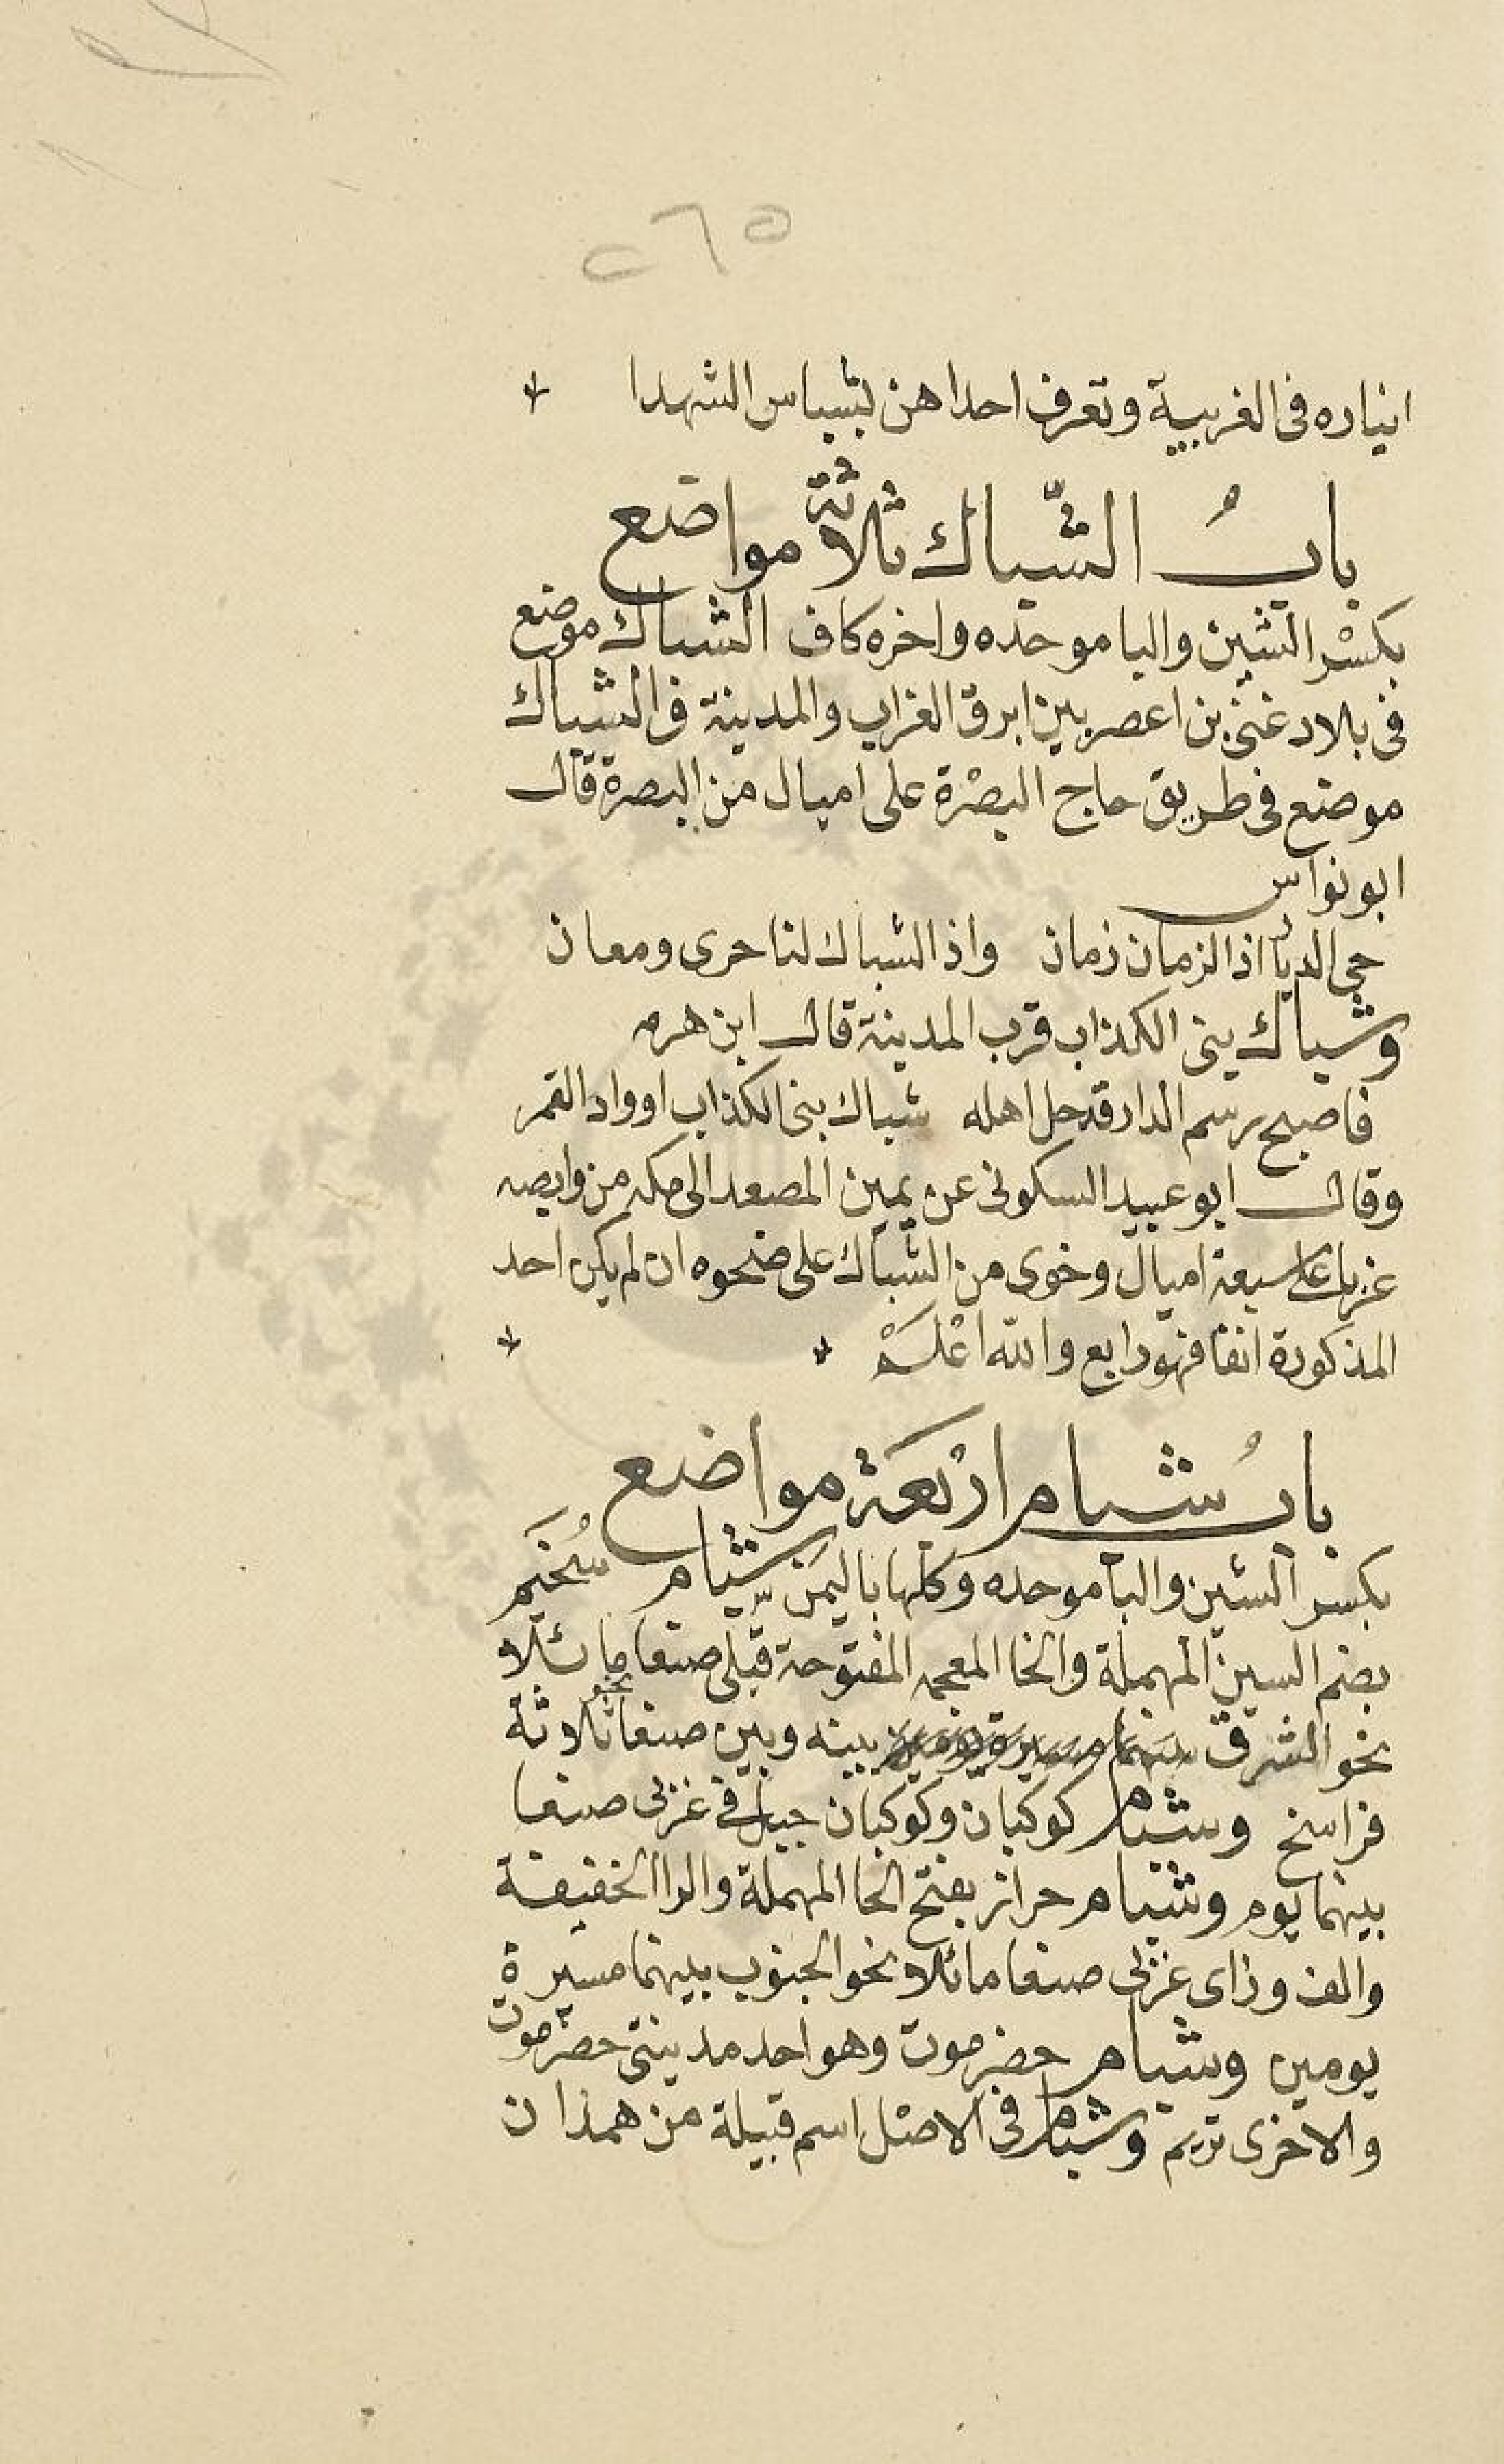 ٢٦٥
انياره فى الغربية وتعرف احداهن بشباس الشهدا
بابُ الشّباك ثلاثة مواضع
بكسْر الشين واليا موحده واخره كاف الشباك موضع
فى بلاد غنى بن اعصر بين ابرق العزاب والمدينة والشباك
موضع فى طريق حاج البصْرة على اميال من البصرة قال
ابو نواس
حى الديار اذ الزمان زمان واذ الشباك لنا حرى ومعان
وشباك بنى الكذاب قرب المدينة قال ابن هرمه
فاصبح رسم الدار قد حل اهله شباك بنى الكذاب او واد القمر
وقال ابو عبيد السكونى عن يمين المصعد الى مكه من واقصه
على سبعة اميال وخوى من الشباك على ضحوه ان لم يكن احد
المذكورة انفا فهو رابع والله اعْلَمْ
بابُ شبام ارْبَعَة مواضع
بكسر الشين والبا موحده وكلها باليمَن شبام سُخَيم
بضم السين المهملة والخا المعجمه المفتوحة قبلى صنعا مائلا
نحو الشرق بينه وبين صنعا نحو ثلاثة
فراسخ وشبام كوكبان وكوكبان جبل فى غربى صنعا
بينهما يوم وشبام حراز بفتح الحا المهملة والرا الخفيفة
والف وزاى غربى صنعا مائلا نحو الجنوب بينهما مسيرة
يومين وشبام حضرموت وهو احد مدينتى حضرموت
والاخرى تريم وشبام فى الاصل اسم قبيلة من همذان